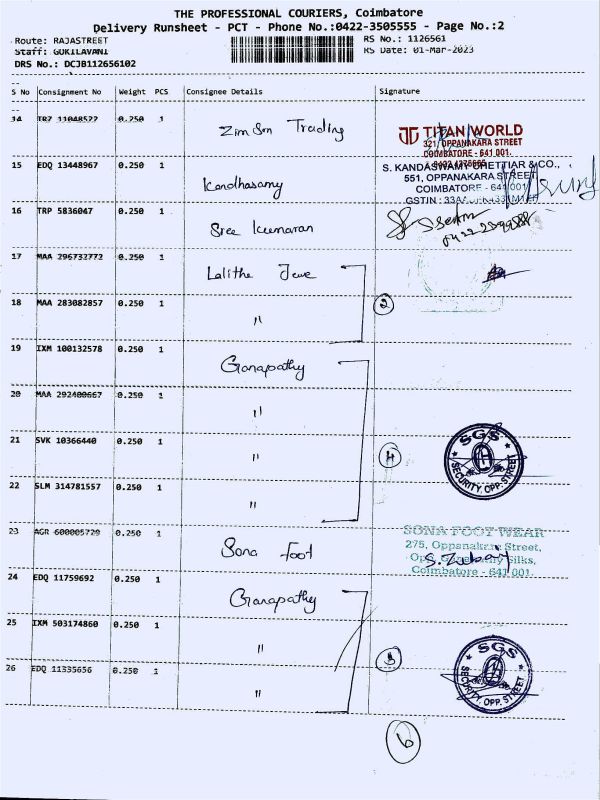 THE PROFESSIONAL COURIERS, Coimbatore
Delivery Runsheet - PCT - Phone No.:0422-3505555 - Page No.:2
Route: RAJASTREET
RS No.: 1126561
Staff: GOKILAVANI
RS Date: 01-Mar-2023
DRS No.: DCJB112656102
S No Consignment No Weight PCS Consignee Details Signature
14 TRZ 11048522 0.250 1 Zimson Trading
TITAN WORLD
321, OPPANAKARA STREET
COIMBATORE - 641 001.
15 EDQ 13448967 0.250 1 Kandhasamy
S. KANDASWAMY CHETTIAR & CO.,
551, OPPANAKARA STREET
COIMBATORE - 641 001
GSTIN : 33A
16 TRP 5836047 0.250 1 Sree Kumaran
17 MAA 296732772 0.250 1 Lalitha Jewe
18 MAA 283082857 0.250 1 "
2
19 IXM 100132578 0.250 1 Ganapathy
20 MAA 292400667 0.250 1 "
21 SVK 10366440 0.250 1 "
4
SGS
SECURITY OPP. STREET
22 SLM 314781557 0.250 1 "
23 AGR 600005729 0.250 1 Sona Foot
SONA FOOT WEAR
275, Oppanakara Street,
Silks,
Coimbatore - 641 001
S. Zubay
24 EDQ 11759692 0.250 1 Ganapathy
25 IXM 503174860 0.250 1 "
3
SGS
SECURITY OPP. STREET
26 EDQ 11335656 0.250 1 "
6